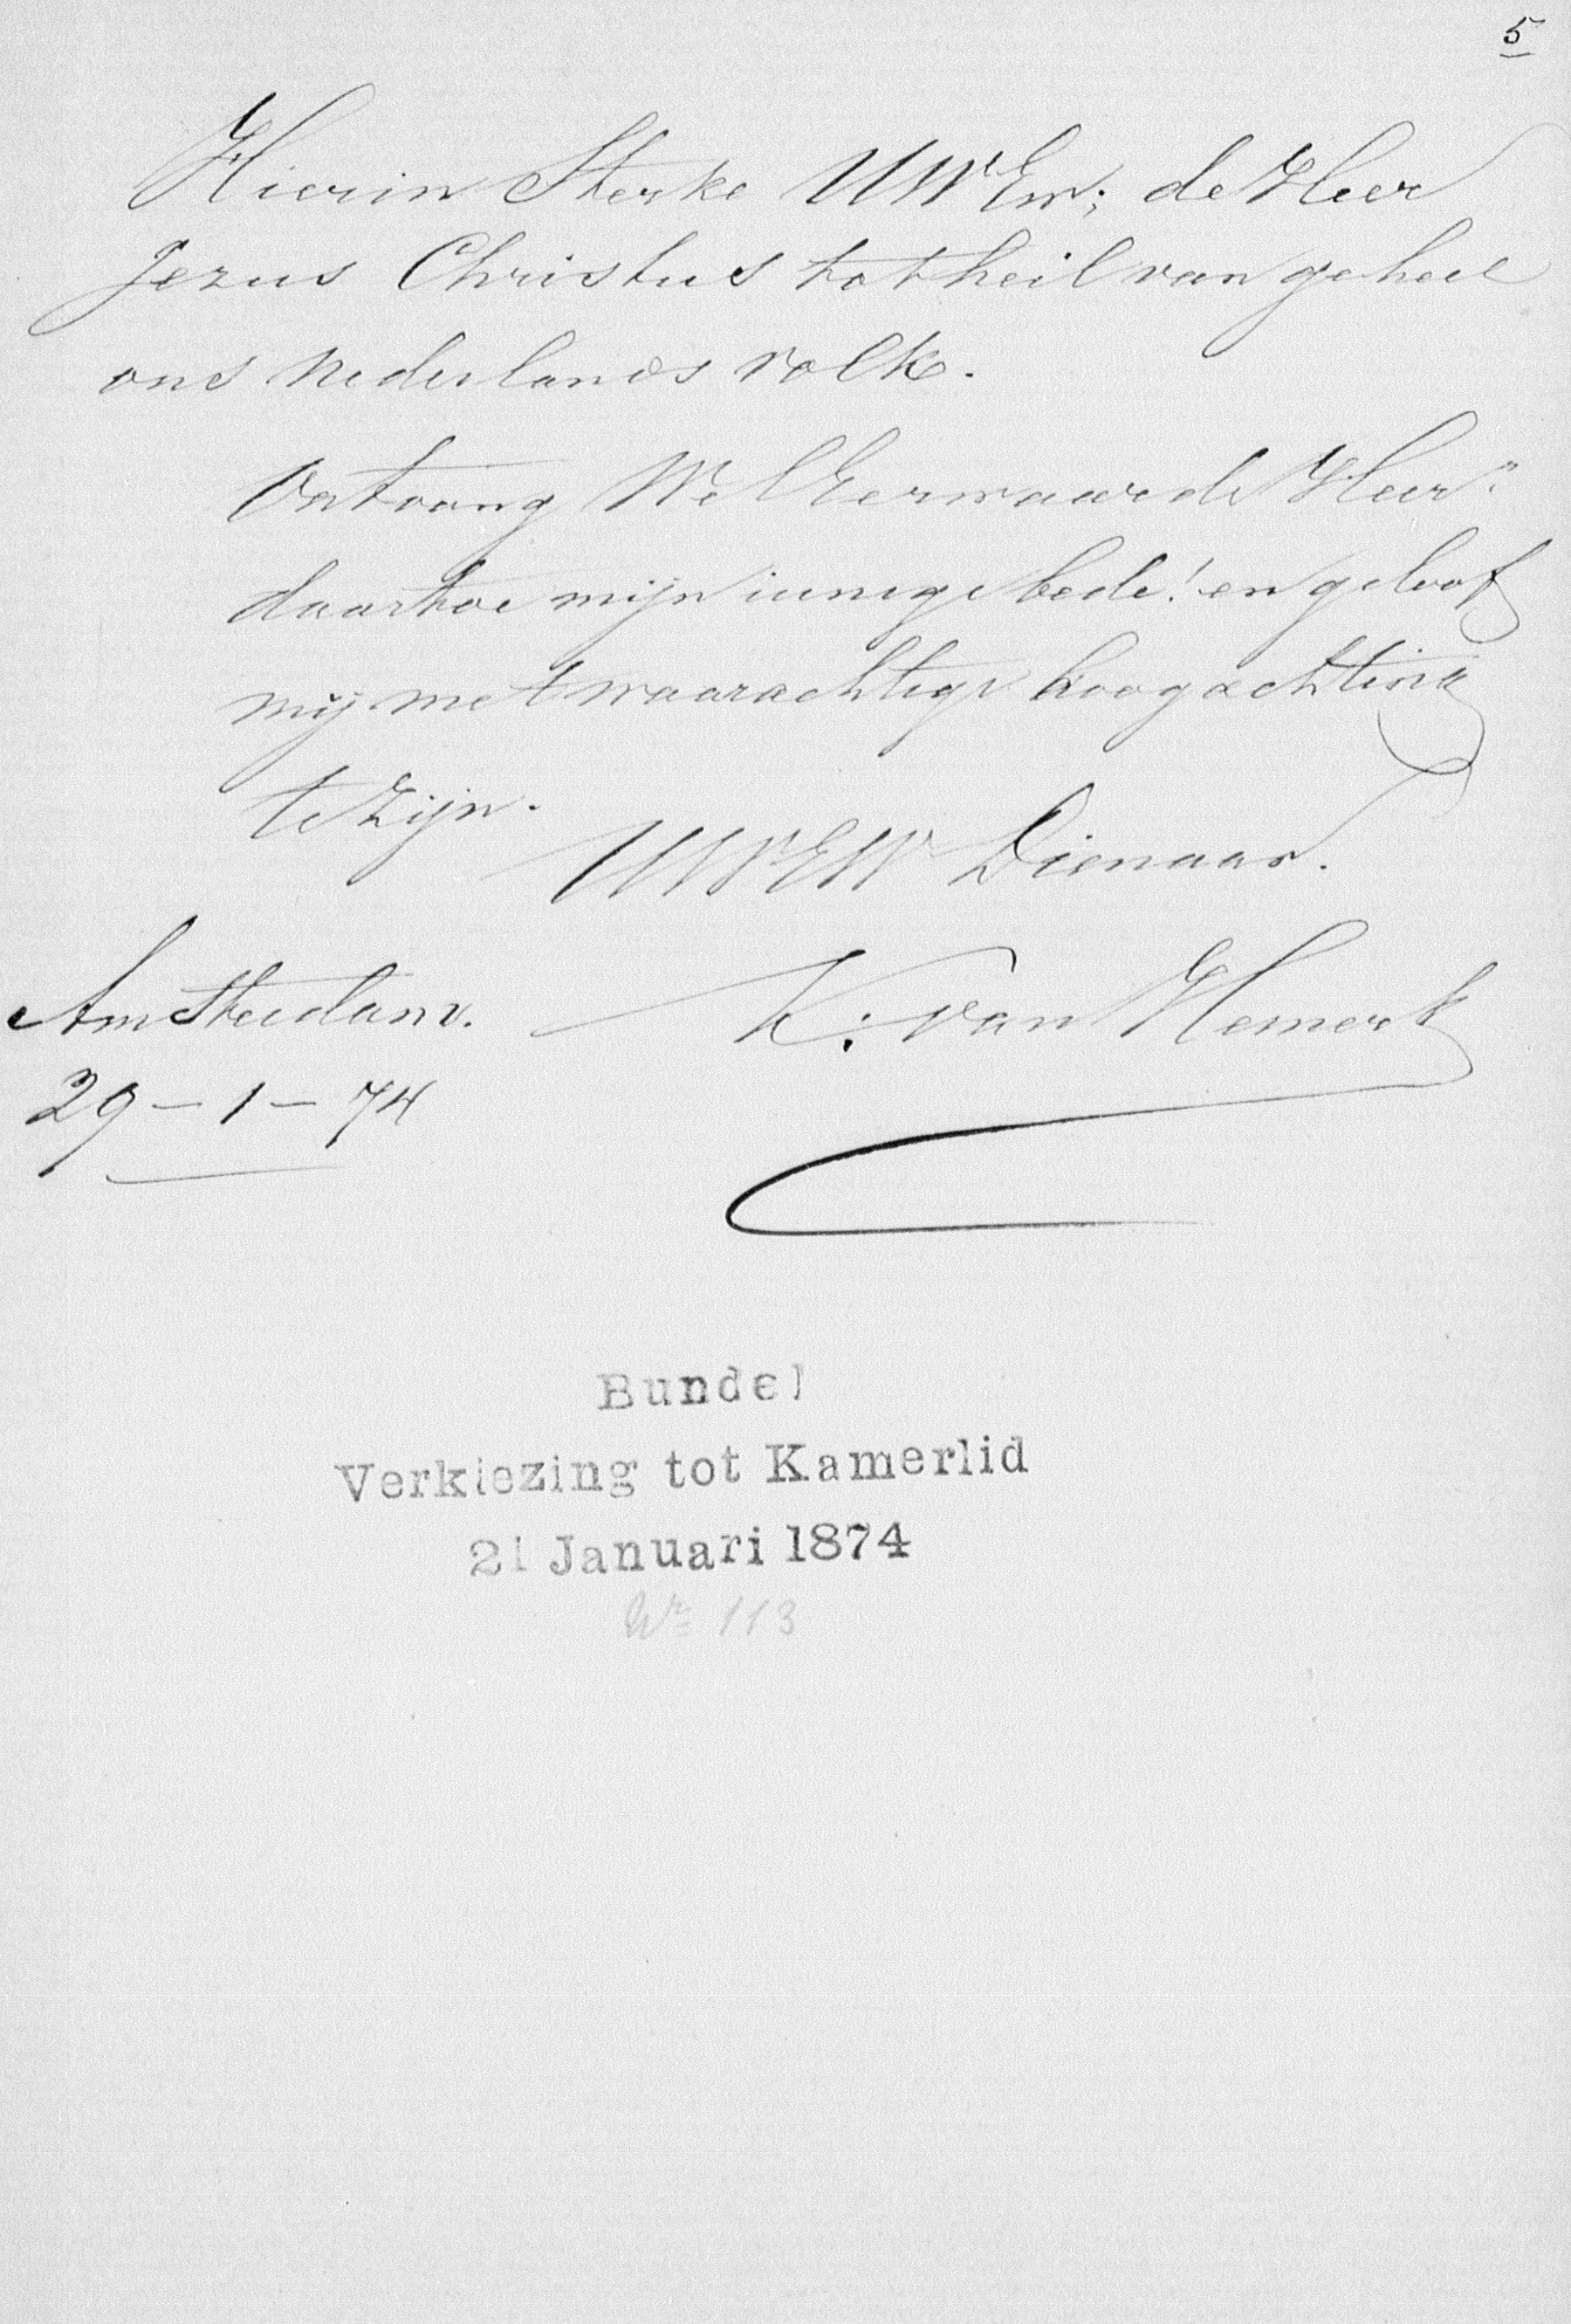 5
Hierin Sterke UWEw; de Heer
Jezus Christus tot heil van geheel
ons Nederlands volk.
Ontvang Wel Eerwaarde Heer!
daartoe mijn innige bede! en geloof
mij met waarachtige hoogachting
te zijn.
UWEW Dienaar.
Amsterdam. K: van Hemert
29-1-74
Bundel
Verkiezing tot Kamerlid
21 Januari 1874
Nr 113